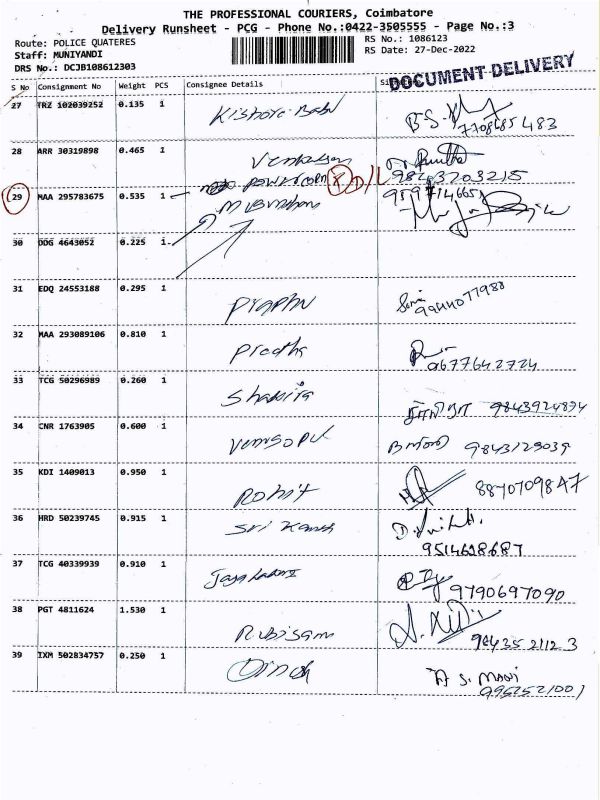 THE PROFESSIONAL COURIERS, Coimbatore
Delivery Runsheet - PCG - Phone No.:0422-3505555 - Page No.:3
Route: POLICE QUATERES
RS No.: 1086123
Staff: MUNIYANDI
RS Date: 27-Dec-2022
DRS No.: DCJB108612303
DOCUMENT DELIVERY
S No Consignment No Weight PCS Consignee Details
27 TRZ 102039252 0.135 1 Kishore Babu
7708685483
28 ARR 30319898 0.465 1
29 MAA 295783675 0.535 1
30 DDG 4643052 0.225 1
31 EDQ 24553188 0.295 1 Prabhu
9944077988
32 MAA 293089106 0.810 1 Preetha
9677642724
33 TCG 50296989 0.260 1
9843924834
34 CNR 1763905 0.600 1 Venugopal
9843125039
35 KDI 1409013 0.950 1 Rohit
8870709847
36 HRD 50239745 0.915 1 Sri
9514628687
37 TCG 40339939 0.910 1
9790697090
38 PGT 4811624 1.530 1
9843521123
39 IXM 502834757 0.250 1 Dinesh
9952521001